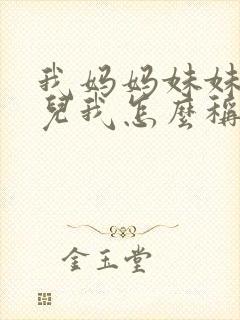 我妈妈妹妹
兒我怎麼稱
金玉堂